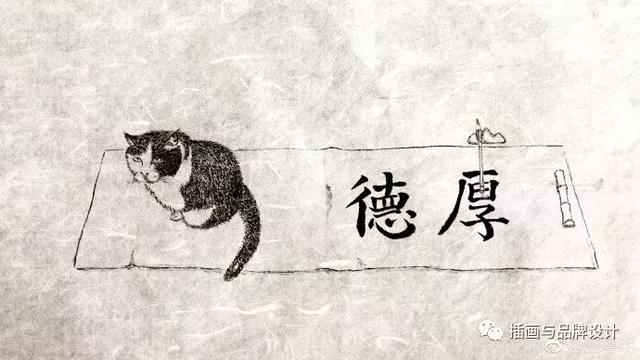 德厚
插画与品牌设计